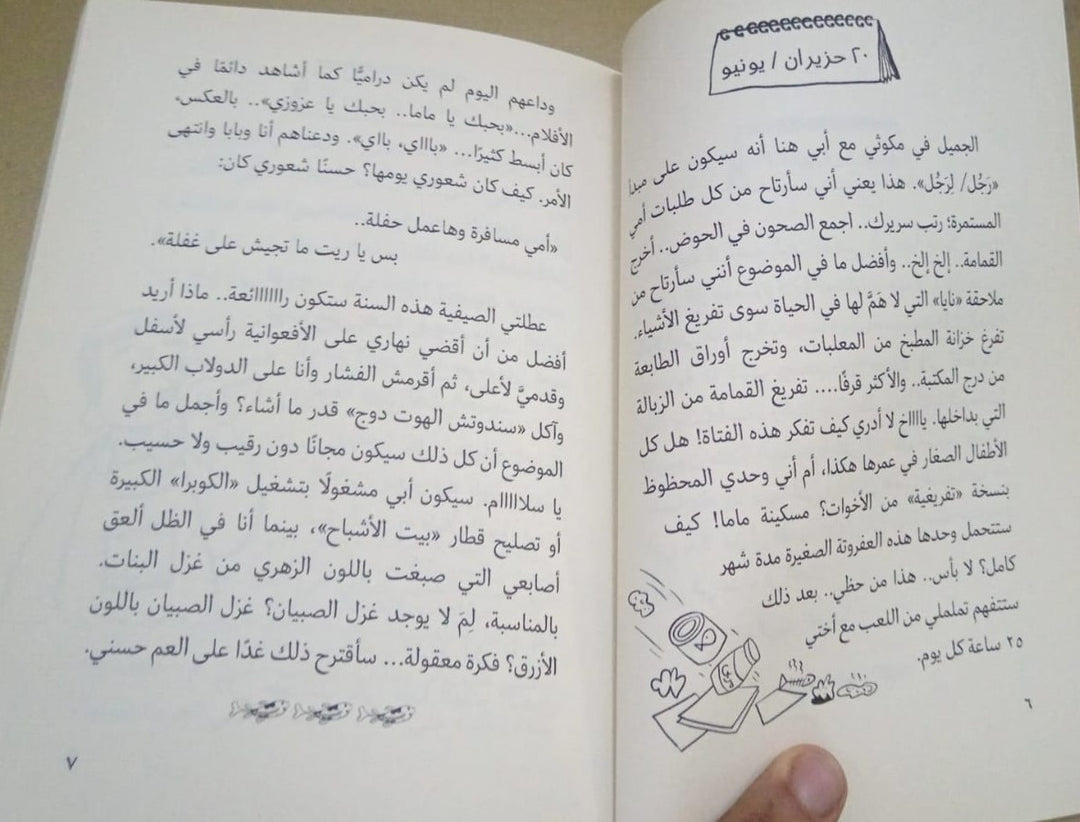 ٢٠ حزيران / يونيو
الجميل في مكوثي مع أبي هنا أنه سيكون على مبدأ
«رَجُل/ لِرَجُل». هذا يعني أني سأرتاح من كل طلبات أمي
المستمرة؛ رتب سريرك.. اجمع الصحون في الحوض.. أخرج
القمامة.. إلخ إلخ.. وأفضل ما في الموضوع أنني سأرتاح من
ملاحقة «نايا» التي لا هَمَّ لها في الحياة سوى تفريغ الأشياء.
تفرغ خزانة المطبخ من المعلبات، وتخرج أوراق الطابعة
من درج المكتبة.. والأكثر قرفًا.... تفريغ القمامة من الزبالة
التي بداخلها. ياااااخ لا أدري كيف تفكر هذه الفتاة! هل كل
الأطفال الصغار في عمرها هكذا، أم أني وحدي المحظوظ
بنسخة «تفريغية» من الأخوات؟ مسكينة ماما! كيف
ستتحمل وحدها هذه العفروتة الصغيرة مدة شهر
كامل؟ لا بأس.. هذا من حظي.. بعد ذلك
ستتفهم تململي من اللعب مع أختي
٢٥ ساعة كل يوم.
٦
وداعهم اليوم لم يكن دراميًّا كما أشاهد دائمًا في
الأفلام...«بحبك يا ماما.. بحبك يا عزوزي».. بالعكس،
كان أبسط كثيرًا... «باااي، بااي». ودعناهم أنا وبابا وانتهى
الأمر. كيف كان شعوري يومها؟ حسنًا شعوري كان:
«أمي مسافرة وهاعمل حفلة..
بس يا ريت ما تجيش على غفلة».
عطلتي الصيفية هذه السنة ستكون رااااااائعة.. ماذا أريد
أفضل من أن أقضي نهاري على الأفعوانية رأسي لأسفل
وقدميَّ لأعلى، ثم أقرمش الفشار وأنا على الدولاب الكبير،
وآكل «سندوتش الهوت دوج» قدر ما أشاء؟ وأجمل ما في
الموضوع أن كل ذلك سيكون مجانًا دون رقيب ولا حسيب.
يا سلااااام. سيكون أبي مشغولًا بتشغيل «الكوبرا» الكبيرة
أو تصليح قطار «بيت الأشباح»، بينما أنا في الظل ألعق
أصابعي التي صبغت باللون الزهري من غزل البنات.
بالمناسبة، لِمَ لا يوجد غزل الصبيان؟ غزل الصبيان باللون
الأزرق؟ فكرة معقولة... سأقترح ذلك غدًا على العم حسني.
٧